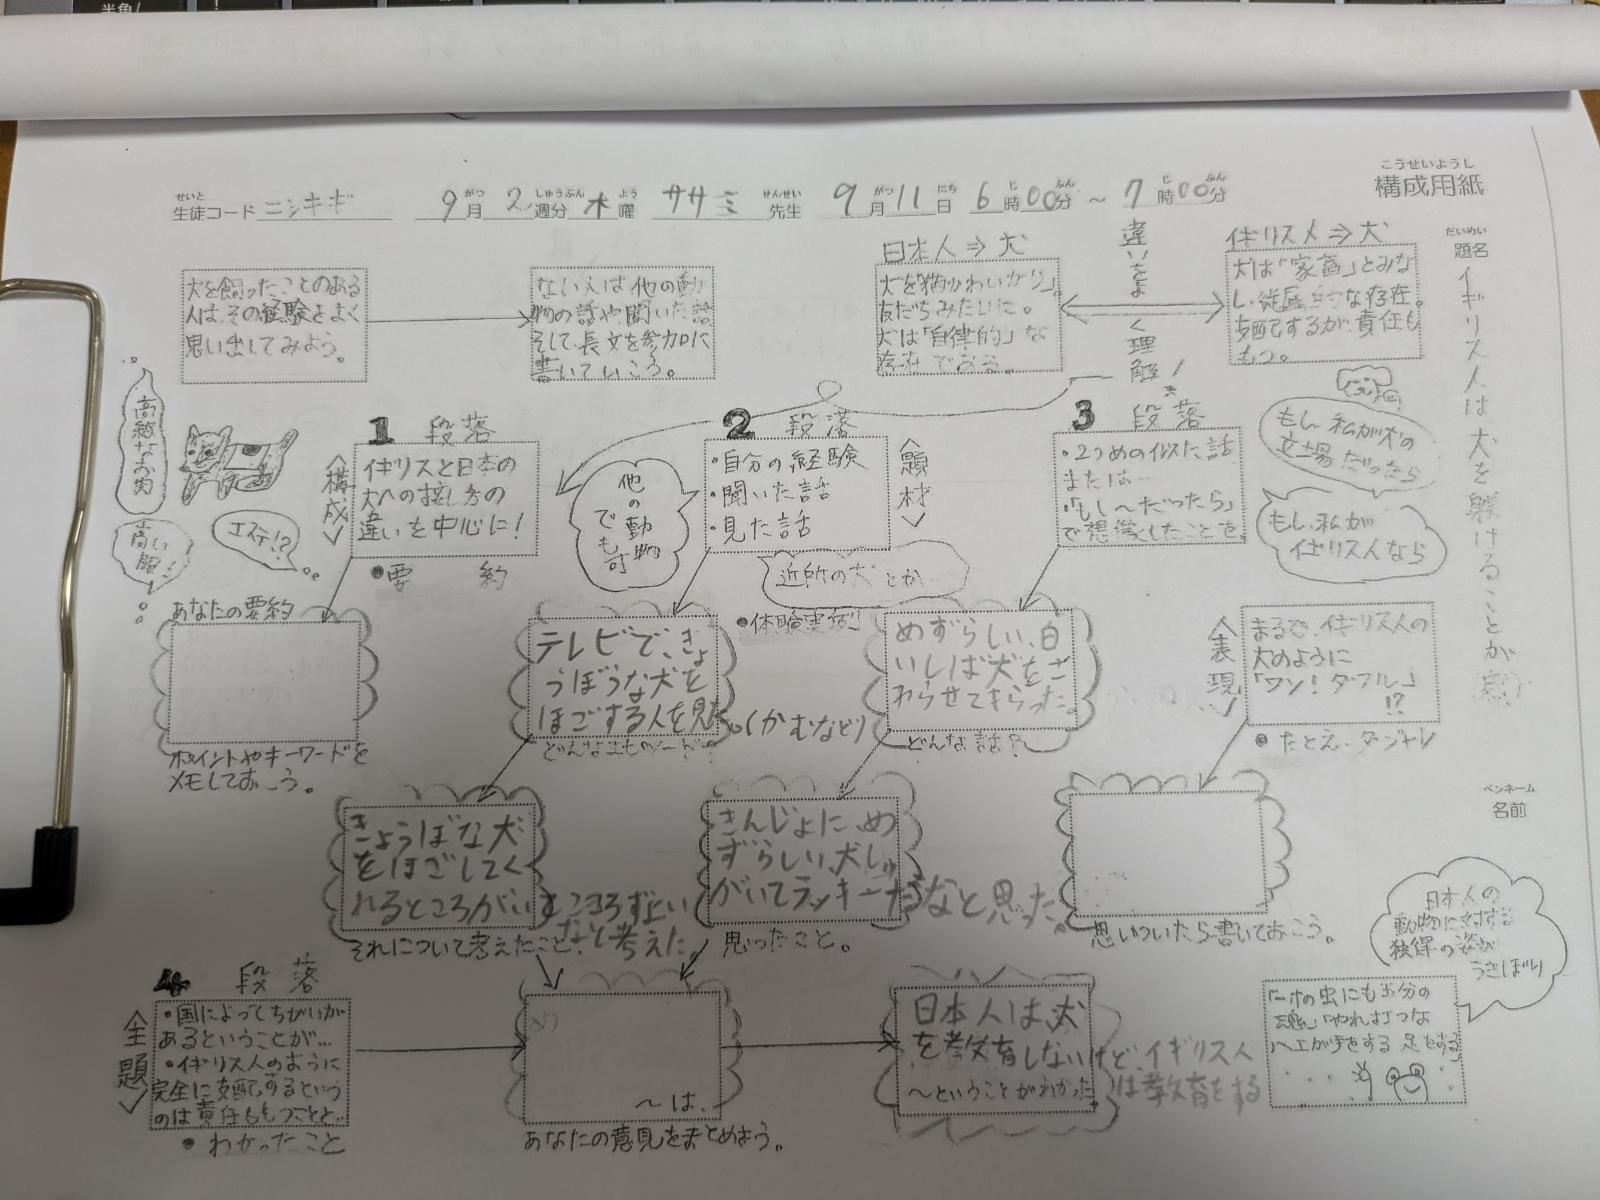 半角/
こうせいようし
構成用紙
せいと
生徒コード ニシキギ
9月 2週分 木曜 ササミ先生 9月11日 6時00分 ～ 7時00分
がつ しゅうぶん よう せんせい がつ にち じ ふん じ ふん
だいめい
題名
イギリス人は犬を躾けることが
ペンネーム
名前
犬を飼ったことのある
人は、その経験をよく
思い出してみよう。
ない人は他の動
物の話や、聞いた話
そして、長文を参加に
書いていころ。
日本人⇒犬
犬を「猫かわいがり」。
友だちみたいに。
犬は「自律的」な
存在である。
違いをよく理解!
イギリス人⇒犬
犬は「家畜」とみな
し、従属的な存在。
支配するが、責任も
もつ。
高級なお肉
エステ!?
高い服
1 段落
〈構成〉
イギリスと日本の
犬への接し方の
違いを中心に!
●要約
他の動物でも可
2 段落
〈題材〉
・自分の経験
・聞いた話
・見た話
近所の犬とか
●体験実例
3 段落
・2つめの似た話
または…
・「もし〜だったら」
で想像したことを。
もし、私が犬の
立場だったら
もし、私が
イギリス人なら
あなたの要約
ポイントやキーワードを
メモしておこう。
テレビで、きょ
うぼうな犬を
ほごする人を見た
。(かむなど)
めずらしい、白
いしば犬をさ
わらせてもらった。
どんな話?
〈表現〉
まるで、イギリス人の
犬のように
「ワン!ダフル」
!?
●たとえ、ダジャレ
きょうぼな犬
をほごしてく
れるところがいすこころずよい
なと考えた。
それについて考えたこと、
きんじょに、め
ずらしい、犬しゅ
がいてラッキーだなと思った。
思ったこと。
思いついたら書いておこう。
4 段落
〈主題〉
・国によってちがいが
あるということが…
・イギリス人のように
完全に支配するという
のは責任をもつことと…
●わかったこと
め
〜は、
あなたの意見をまとめよう。
日本人は、犬
を教育しないけど、イギリス人
は教育をする
〜ということがわかった。
日本人の
動物に対する
独得の姿が
うきぼり
「一寸の虫にも五分の
魂」「やれ打つな
ハエが手をする 足をする」